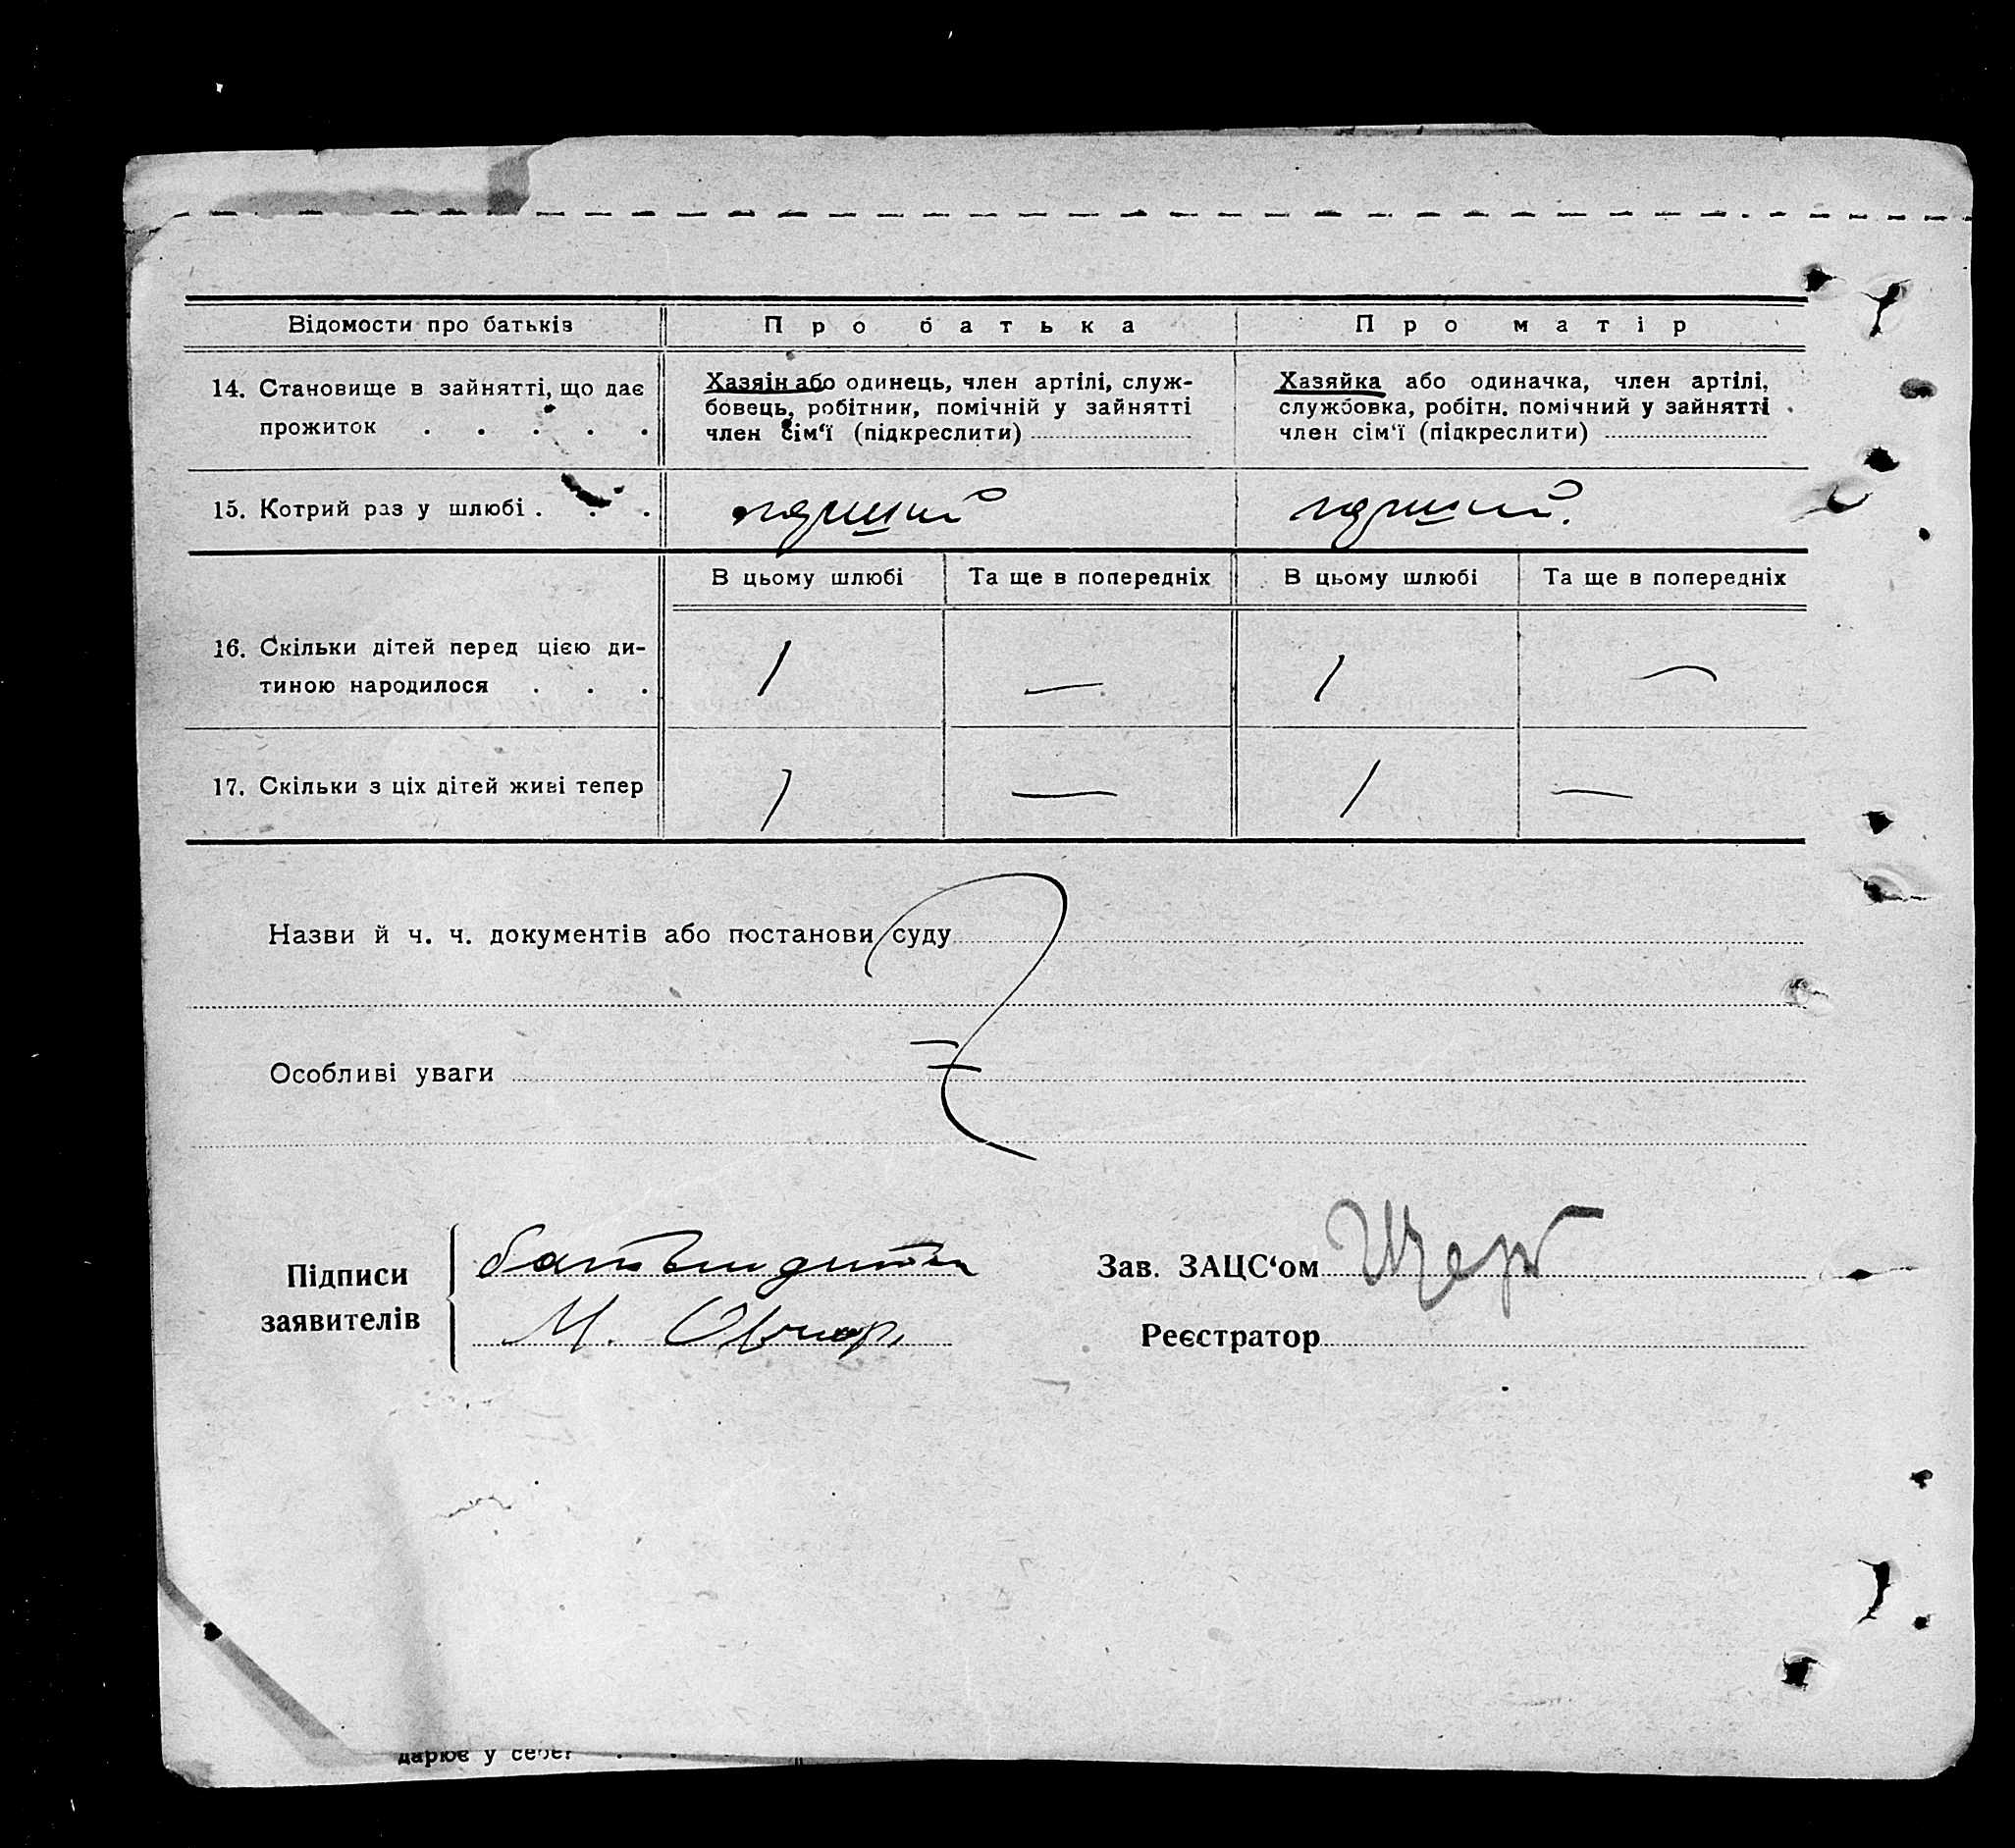 Відомости про батьків
Про батька
Про матір
14. Становище в зайнятті, що дає
прожиток . . . . .
Хазяін або одинець, член артілі, служ-
бовець, робітник, помічній у зайнятті
член сім‘ї (підкреслити)
Хазяйка або одиначка, член артілі,
службовка, робітн. помічний у зайнятті
член сім‘ї (підкреслити)
15. Котрий раз у шлюбі . . .
перший
перший.
В цьому шлюбі
Та ще в попередніх
В цьому шлюбі
Та ще в попередніх
16. Скільки дітей перед цією ди-
тиною народилося . . .
1
—
1
—
17. Скільки з ціх дітей живі тепер
1
—
1
—
Назви й ч. ч. документів або постанови суду
Особливі уваги
Підписи
заявителів
батько дитини
М. Овчар.
Зав. ЗАЦС‘ом
Реєстратор
дарює у себе